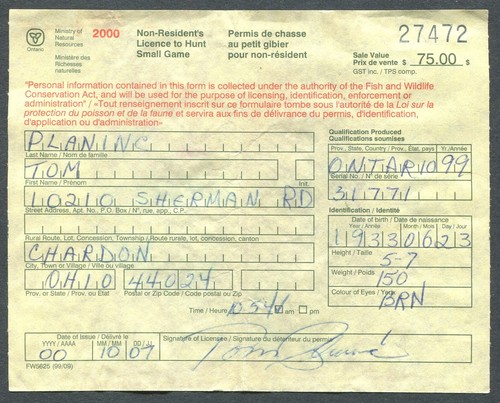 Ontario
Ministry of Natural Resources
Ministère des Richesses naturelles
2000
Non-Resident's Licence to Hunt Small Game
Permis de chasse au petit gibier pour non-résident
27472
Sale Value
Prix de vente $ 75.00 $
GST inc. / TPS comp.
"Personal information contained in this form is collected under the authority of the Fish and Wildlife
Conservation Act, and will be used for the purpose of licensing, identification, enforcement or
administration" / «Tout renseignement inscrit sur ce formulaire tombe sous l'autorité de la Loi sur la
protection du poisson et de la faune et servira aux fins de délivrance du permis, d'identification,
d'application ou d'administration»
PLANINC
Last Name / Nom de famille
TOM
First Name / Prénom Init.
10210 SHERMAN RD
Street Address, Apt. No., P.O. Box / N°, rue, app., C.P.
Rural Route, Lot, Concession, Township / Route rurale, lot, concession, canton
CHARDON
City, Town or Village / Ville ou village
OHIO 44024
Prov. or State / Prov. ou État Postal or Zip Code / Code postal ou Zip
Qualification Produced
Qualifications soumises
Prov., State, Country / Prov., État, pays Yr./Année
ONTARIO 99
Serial No. / N° de série
31771
Identification / Identité
Date of birth / Date de naissance
Year / Année Month / Mois Day / Jour
1933 06 23
Height / Taille 5-7
Weight / Poids 150
Colour of Eyes / Yeux BRN
Time / Heure 10:54 am pm
Date of Issue / Délivré le
YYYY / AAAA MM / MM DD / JJ
00 10 07
Signature of Licensee / Signature du détenteur du permis
Tom
FW5625 (99/09)